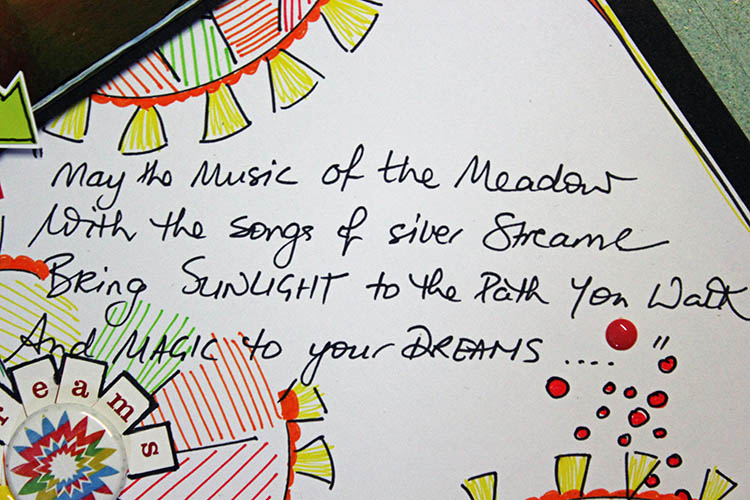 May the Music of the Meadow
With the songs of silver Streams
Bring SUNLIGHT to the Path You Walk
And MAGIC to your DREAMS ..... "
reams